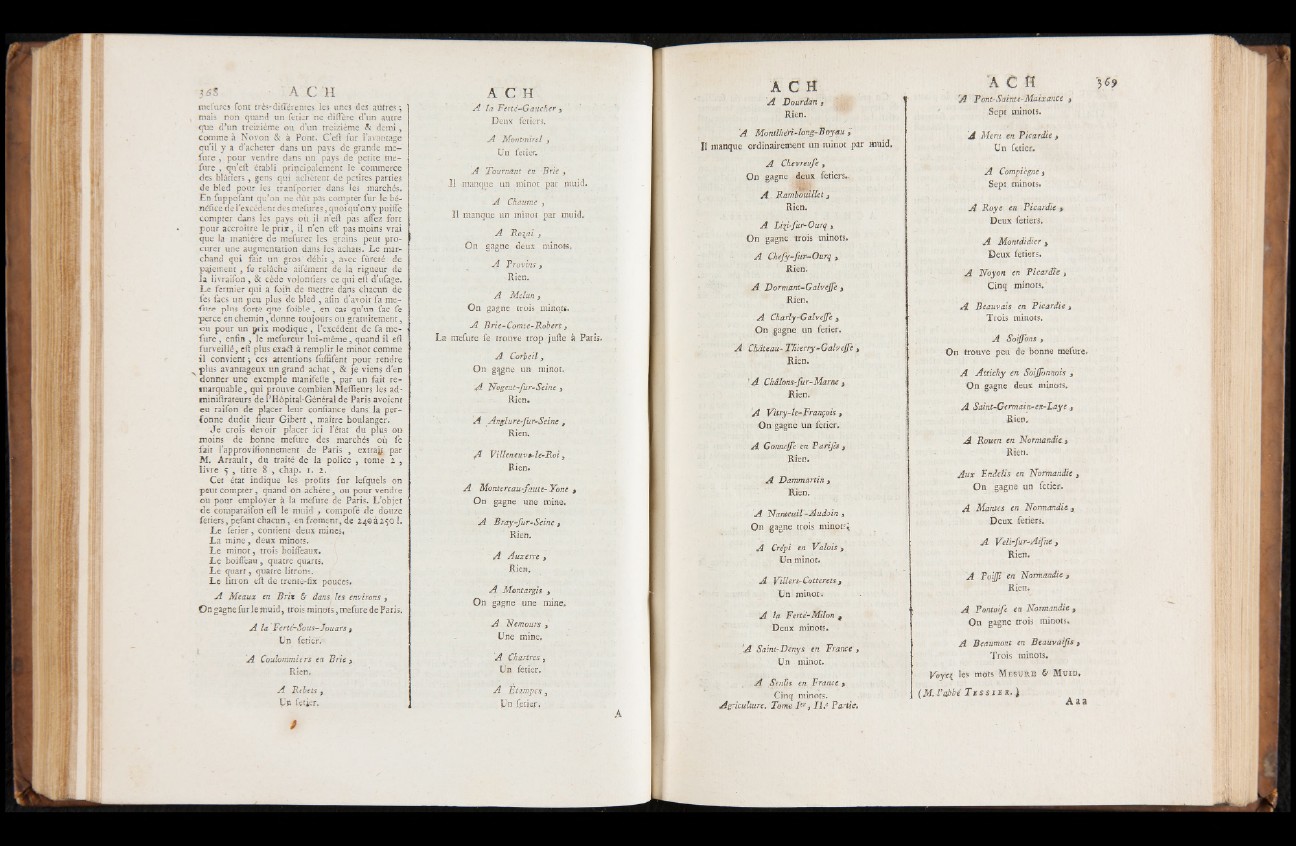 368 A C H
mesures sont très-différentes les unes des autres ;
mais non quand un setier ne diffère d'un autre
que d'un treizième ou d'un treizième & demi,
comme à Noyon & à Pont. C'est sur l'avantage
qu'il y a d'acheter dans un pays de grande me-
sure, pour vendre dans un pays de petite me-
sure, qu'est établi principalement le commerce
des blâtiers, gens qui achètent de petites parties
de bled pour les transporter dans les marchés.
En supposant qu'on ne dût pas compter sur le bé-
néfice de l'excédent des mesures, quoiqu'on y puisse
compter dans les pays où il n'est pas assez fort
pour accroître le prix, il n'en est pas moins vrai
que la manière de mesurer les grains peut pro-
curer une augmentation dans les achats. Le mar-
chand qui fait un gros débit, avec sureté de
paiement, se relâche aisément de la rigueur de
la livraison, & cède volontiers ce qui est d'usage.
Le fermier qui a soin de mettre dans chacun de
ses sacs un peu plus de bled, afin d'avoir sa me-
sure plus forte que foible, en cas qu'un sac se
perce en chemin, donne toujours ou gratuitement,
ou pour un prix modique, l'excédent de sa me-
sure, enfin, le mesureur lui-même, quand il est
surveillé, est plus exact à remplir le minot comme
il convient ; ces attentions suffisent pour rendre
plus avantageux un grand achat, & je viens d'en
donner une exemple manifeste, par un fait re-
marquable, qui prouve combien Messieurs les ad-
ministrateurs de l'Hôpital-Général de Paris avoient
eu raison de placer leur confiance dans la per-
sonne dudit sieur Gibert, maître boulanger.
Je crois devoir placer ici l'état du plus ou
moins de bonne mesure des marchés où se
fait l'approvisionnement de Paris, extrait par
M. Arrault, du traité de la police, tome 2,
livre 5, titre 8, chap. 1. 2.
Cet état indique les profits sur lesquels on
peut compter, quand on achète, ou pour vendre
ou pour employer à la mesure de Paris. L'objet
de comparaison est le muid, composé de douze
setiers, pesant chacun, en froment, de 240 à 250 l.
Le setier, contient deux mines.
La mine, deux minots.
Le minot, trois boisseaux.
Le boisseau, quatre quarts.
Le quart, quatre litrons.
Le litron est de trente-six pouces.
A Meaux en Brie & dans les environs,
On gagne sur le muid, trois minots, mesure de Paris.
A la Ferté-Sous-Jouars,
Un setier.
A Coulommiers en Brie,
Rien.
A Rebets,
Un setier.
A C H
A la Ferté-Gaucher,
Deux setiers.
A Montmirel,
Un setier.
A Tournant en Brie,
Il manque un minot par muid.
A Chaume,
Il manque un minot par muid.
A Rozai,
On gagne deux minots.
A Provins,
Rien.
A Melun,
On gagne trois minots.
A Brie-Comte-Robert,
La mesure se trouve trop juste à Paris.
A Corbeil,
On gagne un minot.
A Nogent-sur-Seine,
Rien.
A Anglure-sur-Seine,
Rien.
A Villeneuve-le-Roi,
Rien.
A Montereau-faute-Yone,
On gagne une mine.
A Bray-sur-Seine,
Rien.
A Auxerre,
Rien.
A Montargis,
On gagne une mine.
A Nemours,
Une mine.
A Chartres,
Un setier.
A Etampes,
Un setier.
A
A C H
A Dourdan,
Rien.
A Montlhéri-long-Boyau,
Il manque ordinairement un minot par muid.
A Chevreuse,
On gagne deux setiers.
A Rambouillet,
Rien.
A Lizi-sur-Ourq,
On gagne trois minots.
A Chesy-sur-Ourq,
Rien.
A Dormant-Galvesse,
Rien.
A Charly-Galvesse,
On gagne un setier.
A Château-Thierry-Galvesse,
Rien.
A Châlons-sur-Marne,
Rien.
A Vitry-le-François,
On gagne un setier.
A Gonnesse en Parisis,
Rien.
A Dammartin,
Rien.
A Nanteuil-Audoin,
On gagne trois minots.
A Crépi en Valois,
Un minot.
A Villers-Cotterets,
Un minot.
A la Ferté-Milon,
Deux minots.
A Saint-Denys en France,
Un minot.
A Senlis en France,
Cinq minots.
Agriculture. Tome Ier, II.e Partie.
A C H 369
A Pont-Sainte-Maixance,
Sept minots.
A Meru en Picardie,
Un setier.
A Compiègne,
Sept minots.
A Roye en Picardie,
Deux setiers.
A Montdidier,
Deux setiers.
A Noyon en Picardie,
Cinq minots.
A Beauvais en Picardie,
Trois minots.
A Soissons,
On trouve peu de bonne mesure.
A Attichy en Soissonnois,
On gagne deux minots.
A Saint-Germain-en-Laye,
Rien.
A Rouen en Normandie,
Rien.
Aux Endelis en Normandie,
On gagne un setier.
A Mantes en Normandie,
Deux setiers.
A Veli-sur-Aisne,
Rien.
A Poissi en Normandie,
Rien.
A Pontoise en Normandie,
On gagne trois minots.
A Beaumont en Beauvaisis,
Trois minots.
Voyez les mots MESURE & MUID.
(M. l'abbé TESSIER.)
A a a